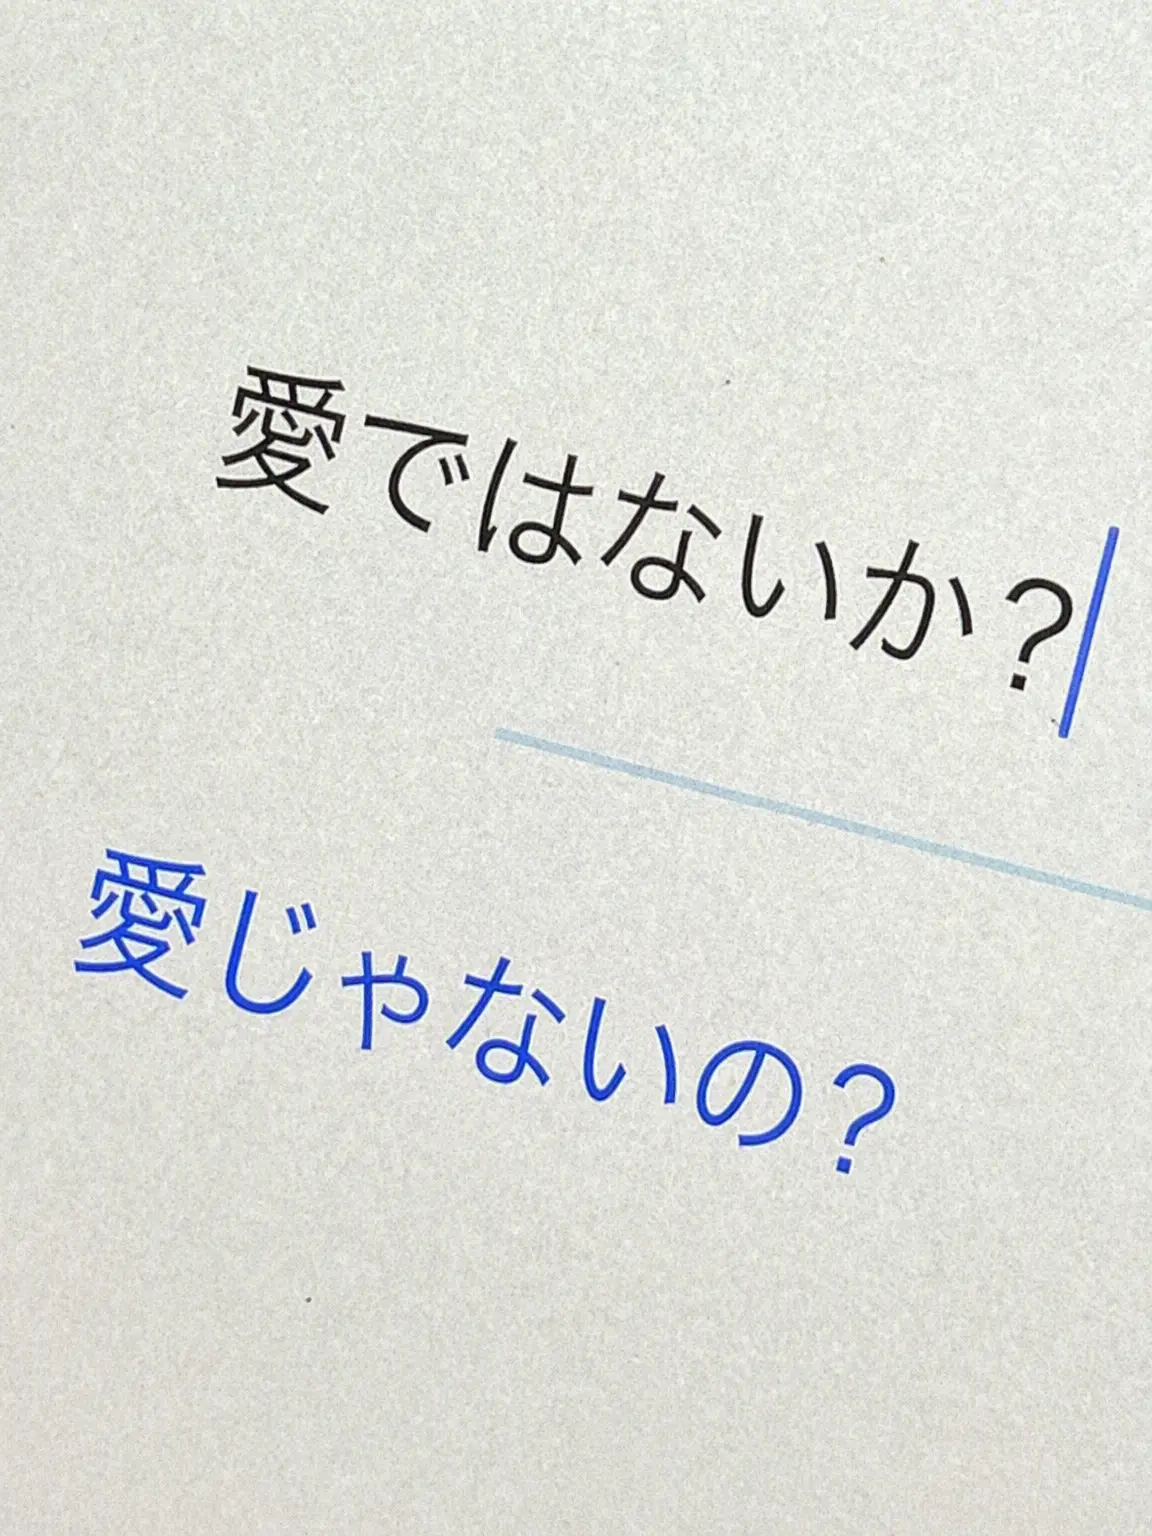 愛ではないか?
愛じゃないの?